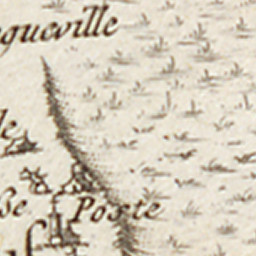 queville
le
se Poste